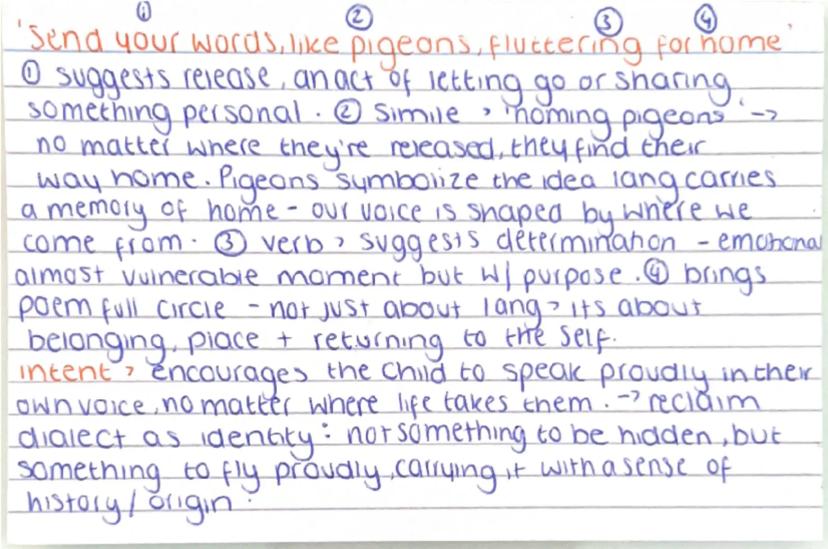 ① ② ③ ④
'Send your words, like pigeons, fluttering for home'
① suggests release, an act of letting go or sharing
something personal. ② simile > 'homing pigeons' ->
no matter where they're released, they find their
way home. Pigeons symbolize the idea lang carries
a memory of home - our voice is shaped by where we
come from. ③ verb > suggests determination - emotional
almost vulnerable moment but w/ purpose. ④ brings
poem full circle - not just about lang > its about
belonging, place + returning to the self.
intent > encourages the child to speak proudly in their
own voice, no matter where life takes them. -> reclaim
dialect as identity: not something to be hidden, but
something to fly proudly, carrying it with a sense of
history / origin.